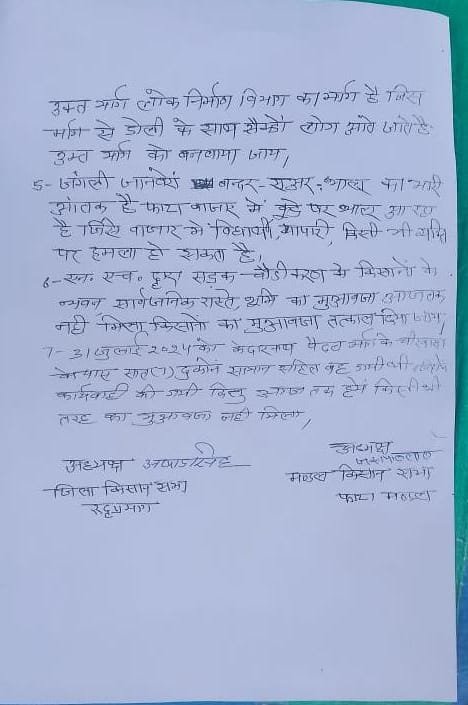 उक्त मार्ग लोक निर्माण विभाग का मार्ग है जिस
मार्ग से डोली के साथ सैकड़ों लोग आते जाते है
उक्त मार्ग को बनवाया जाय,
5- जंगली जानवरों बन्दर-सुअर-भालू का भारी
आंतक है फाटा बाजार में कूडे पर भालू आ रहा
है जिसे बाजार में विद्यार्थी, व्यापारी, किसी भी व्यक्ति
पर हमला हो सकता है,
6- एन. एच. द्वारा सड़क-चौडीकरण के किसानों के
सार्वजनिक रास्ते, भूमि का मुआवजा आजतक
नही मिला किसानों का मुआवजा तत्काल दिया जाय,
7- 31 जुलाई 2024 को केदारनाथ पैदल मार्ग के
के पास सात (7) दुकाने सामान सहित बह गयी थी
कार्यवाही की गयी किन्तु आज तक हमें किसी भी
तरह का मुआवजा नही मिला,
अध्यक्ष
जिला किसान सभा
रुद्रप्रयाग
अध्यक्ष
मण्डल किसान सभा
फाटा मण्डल